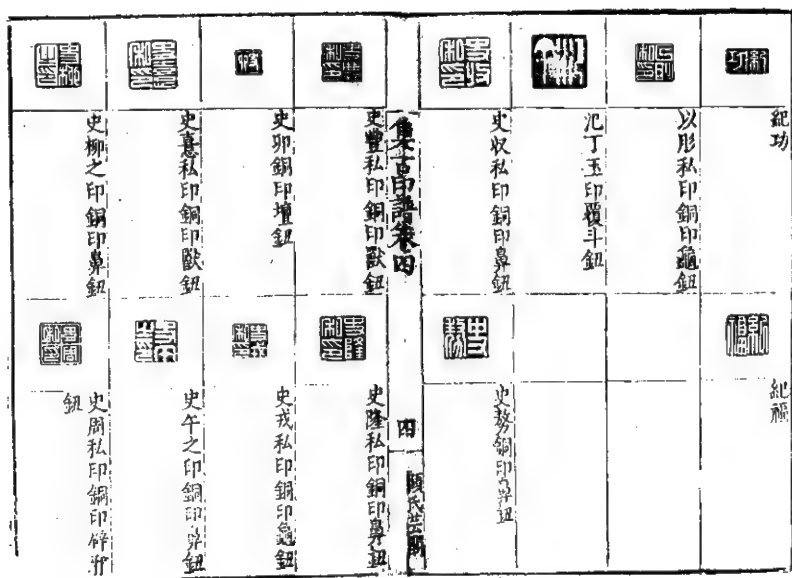 紀功
紀福
以肜私印銅印龜鈕
氾丁玉印覆斗鈕
史收私印銅印鼻鈕
史勝銅印鼻鈕
集古印譜卷四
四
顧氏芸閣
史豐私印銅印獸鈕
史隆私印銅印鼻鈕
史卯銅印壇鈕
史戎私印銅印龜鈕
史意私印銅印獸鈕
史午之印銅印鼻鈕
史柳之印銅印鼻鈕
史周私印銅印辟邪
鈕